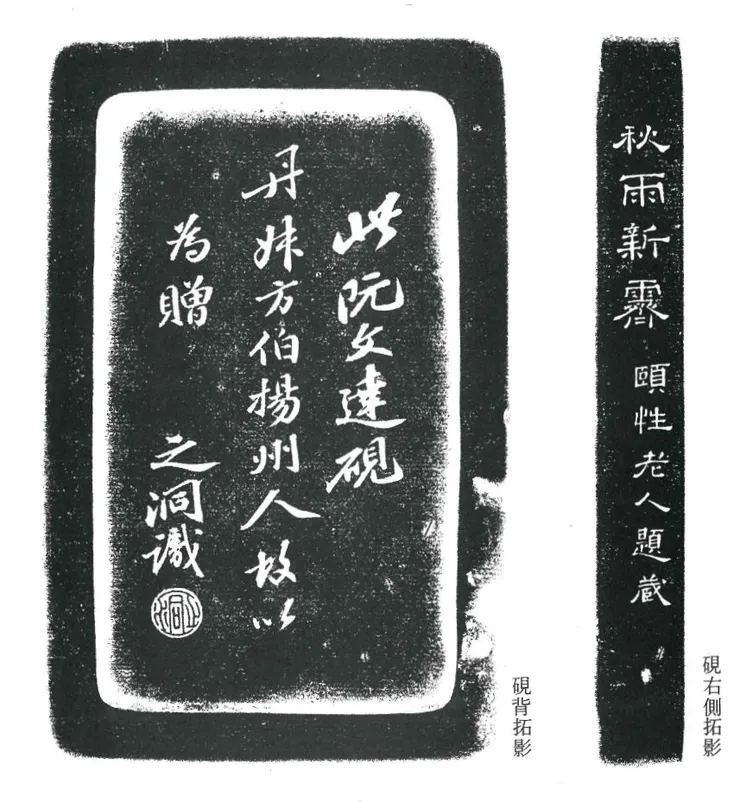 秋雨新霽
頤性老人題藏
硯右側拓影
此阮文達硯
丹妹方伯揚州人故以
為贈
之洞識
之洞
硯背拓影